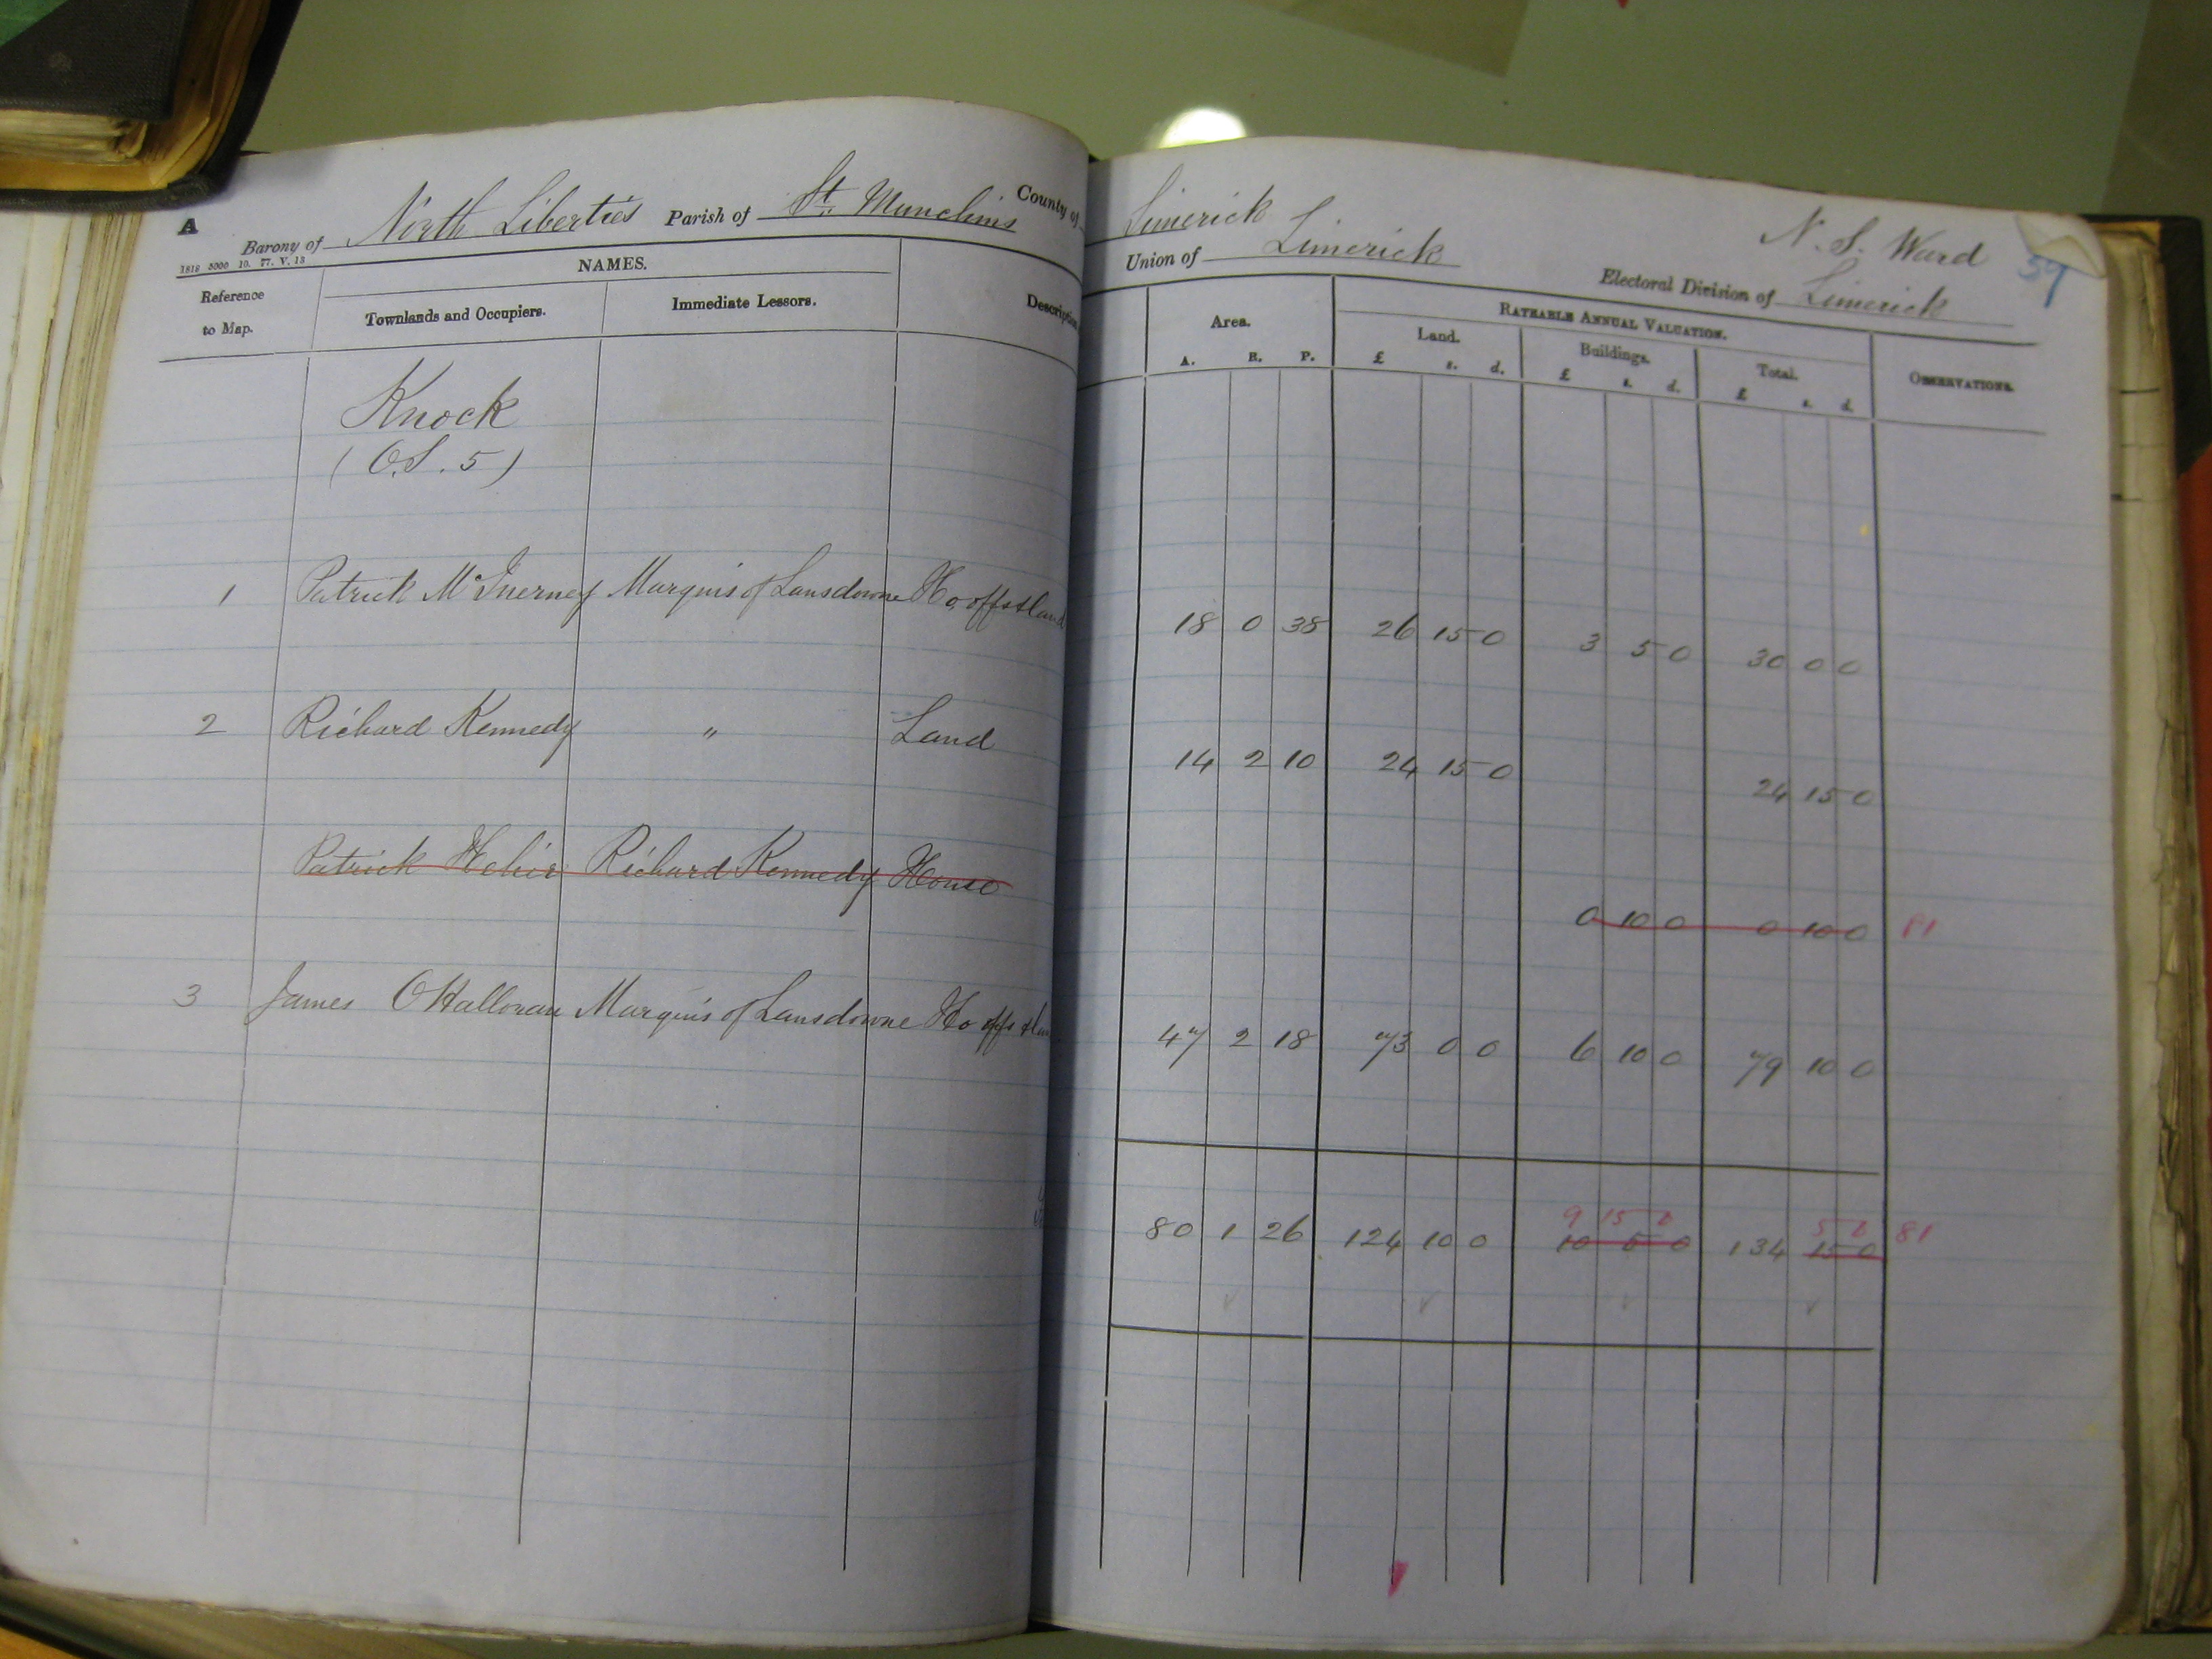 A Barony of North Liberties Parish of St. Munchins County of Limerick
1818 5000 10. 77. V. 13
Union of Limerick Electoral Division of Limerick
N. S. Ward
59
Reference to Map.
NAMES.
Townlands and Occupiers.
Immediate Lessors.
Description
Area.
A. R. P.
RATEABLE ANNUAL VALUATION.
Land.
£ s. d.
Buildings.
£ s. d.
Total.
£ s. d.
OBSERVATIONS.
Knock
(O.S. 5)
1 Patrick McInerney Marquis of Lansdowne Ho offs & land 18 0 38 26 15 0 3 5 0 30 0 0
2 Richard Kennedy " Land 14 2 10 24 15 0 24 15 0
Patrick Hehir Richard Kennedy House 0 10 0 0 10 0 81
3 James O'Halloran Marquis of Lansdowne Ho offs & lan 47 2 18 73 0 0 6 10 0 79 10 0
9 15 0 5 0
80 1 26 124 10 0 10 5 0 134 15 0 81